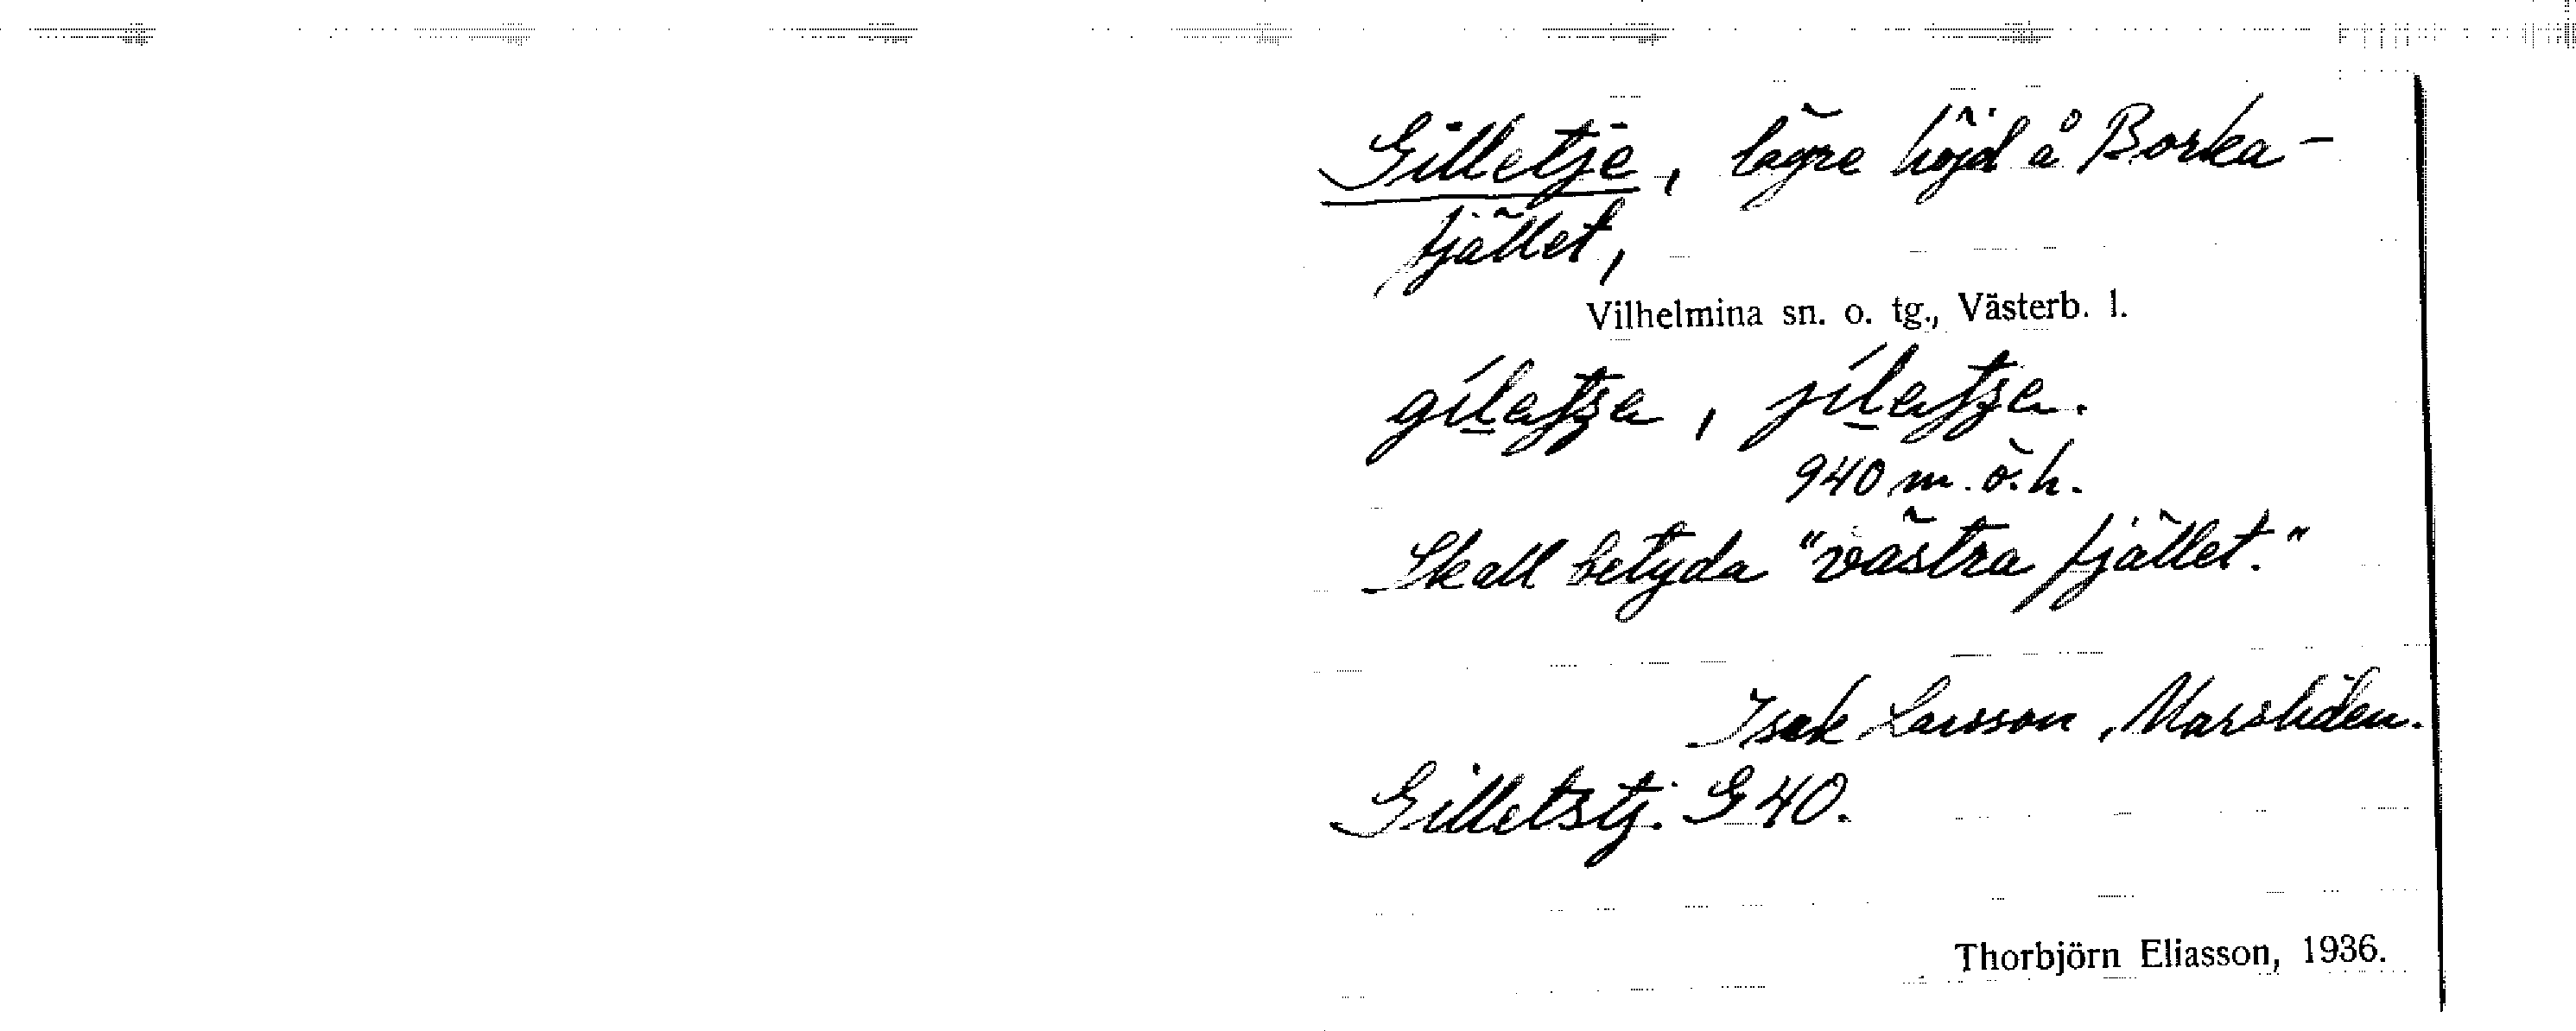 Gilletje, lägre höjd å Borka-
fjället,
Vilhelmina sn. o. tg., Västerb. l.
940 m. ö. h.
Skall betyda "västra fjället."
Isak Larsson, Marsliden.
Gilletstj. G 40.
Thorbjörn Eliasson, 1936.